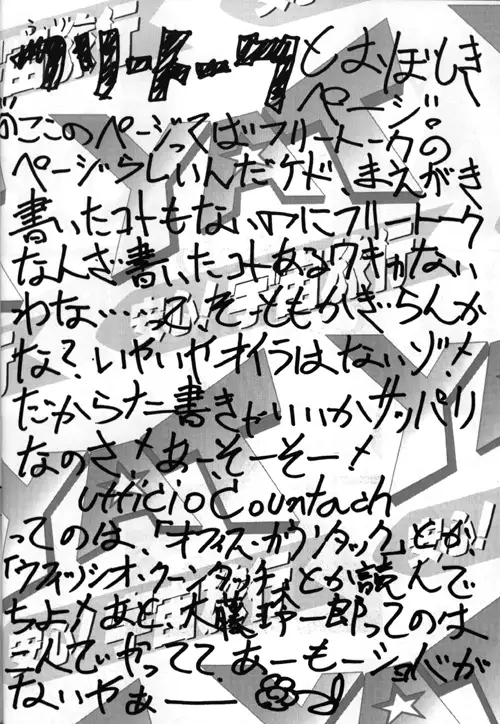 フリートークとおぼしき
ページ!
このページってばフリートークの
ページらしいんだケド、まえがき
書いたコトもないのにフリートーク
なんざ書いたコトあるワきがない
わな…って、そーともかぎらんか
な?いやいやオイラはないゾ!
だからなに書きゃいいかサッパリ
なのさ!あ、そーそー!
ufficio Countach
ってのは、「オフィス・カウンタック」とか
「ウフィッシオ・クーンタッチ」とか読んで
ちょ!あと、大藤玲一郎ってのは
二人でやってて、あーもーショバが
ないやぁ——